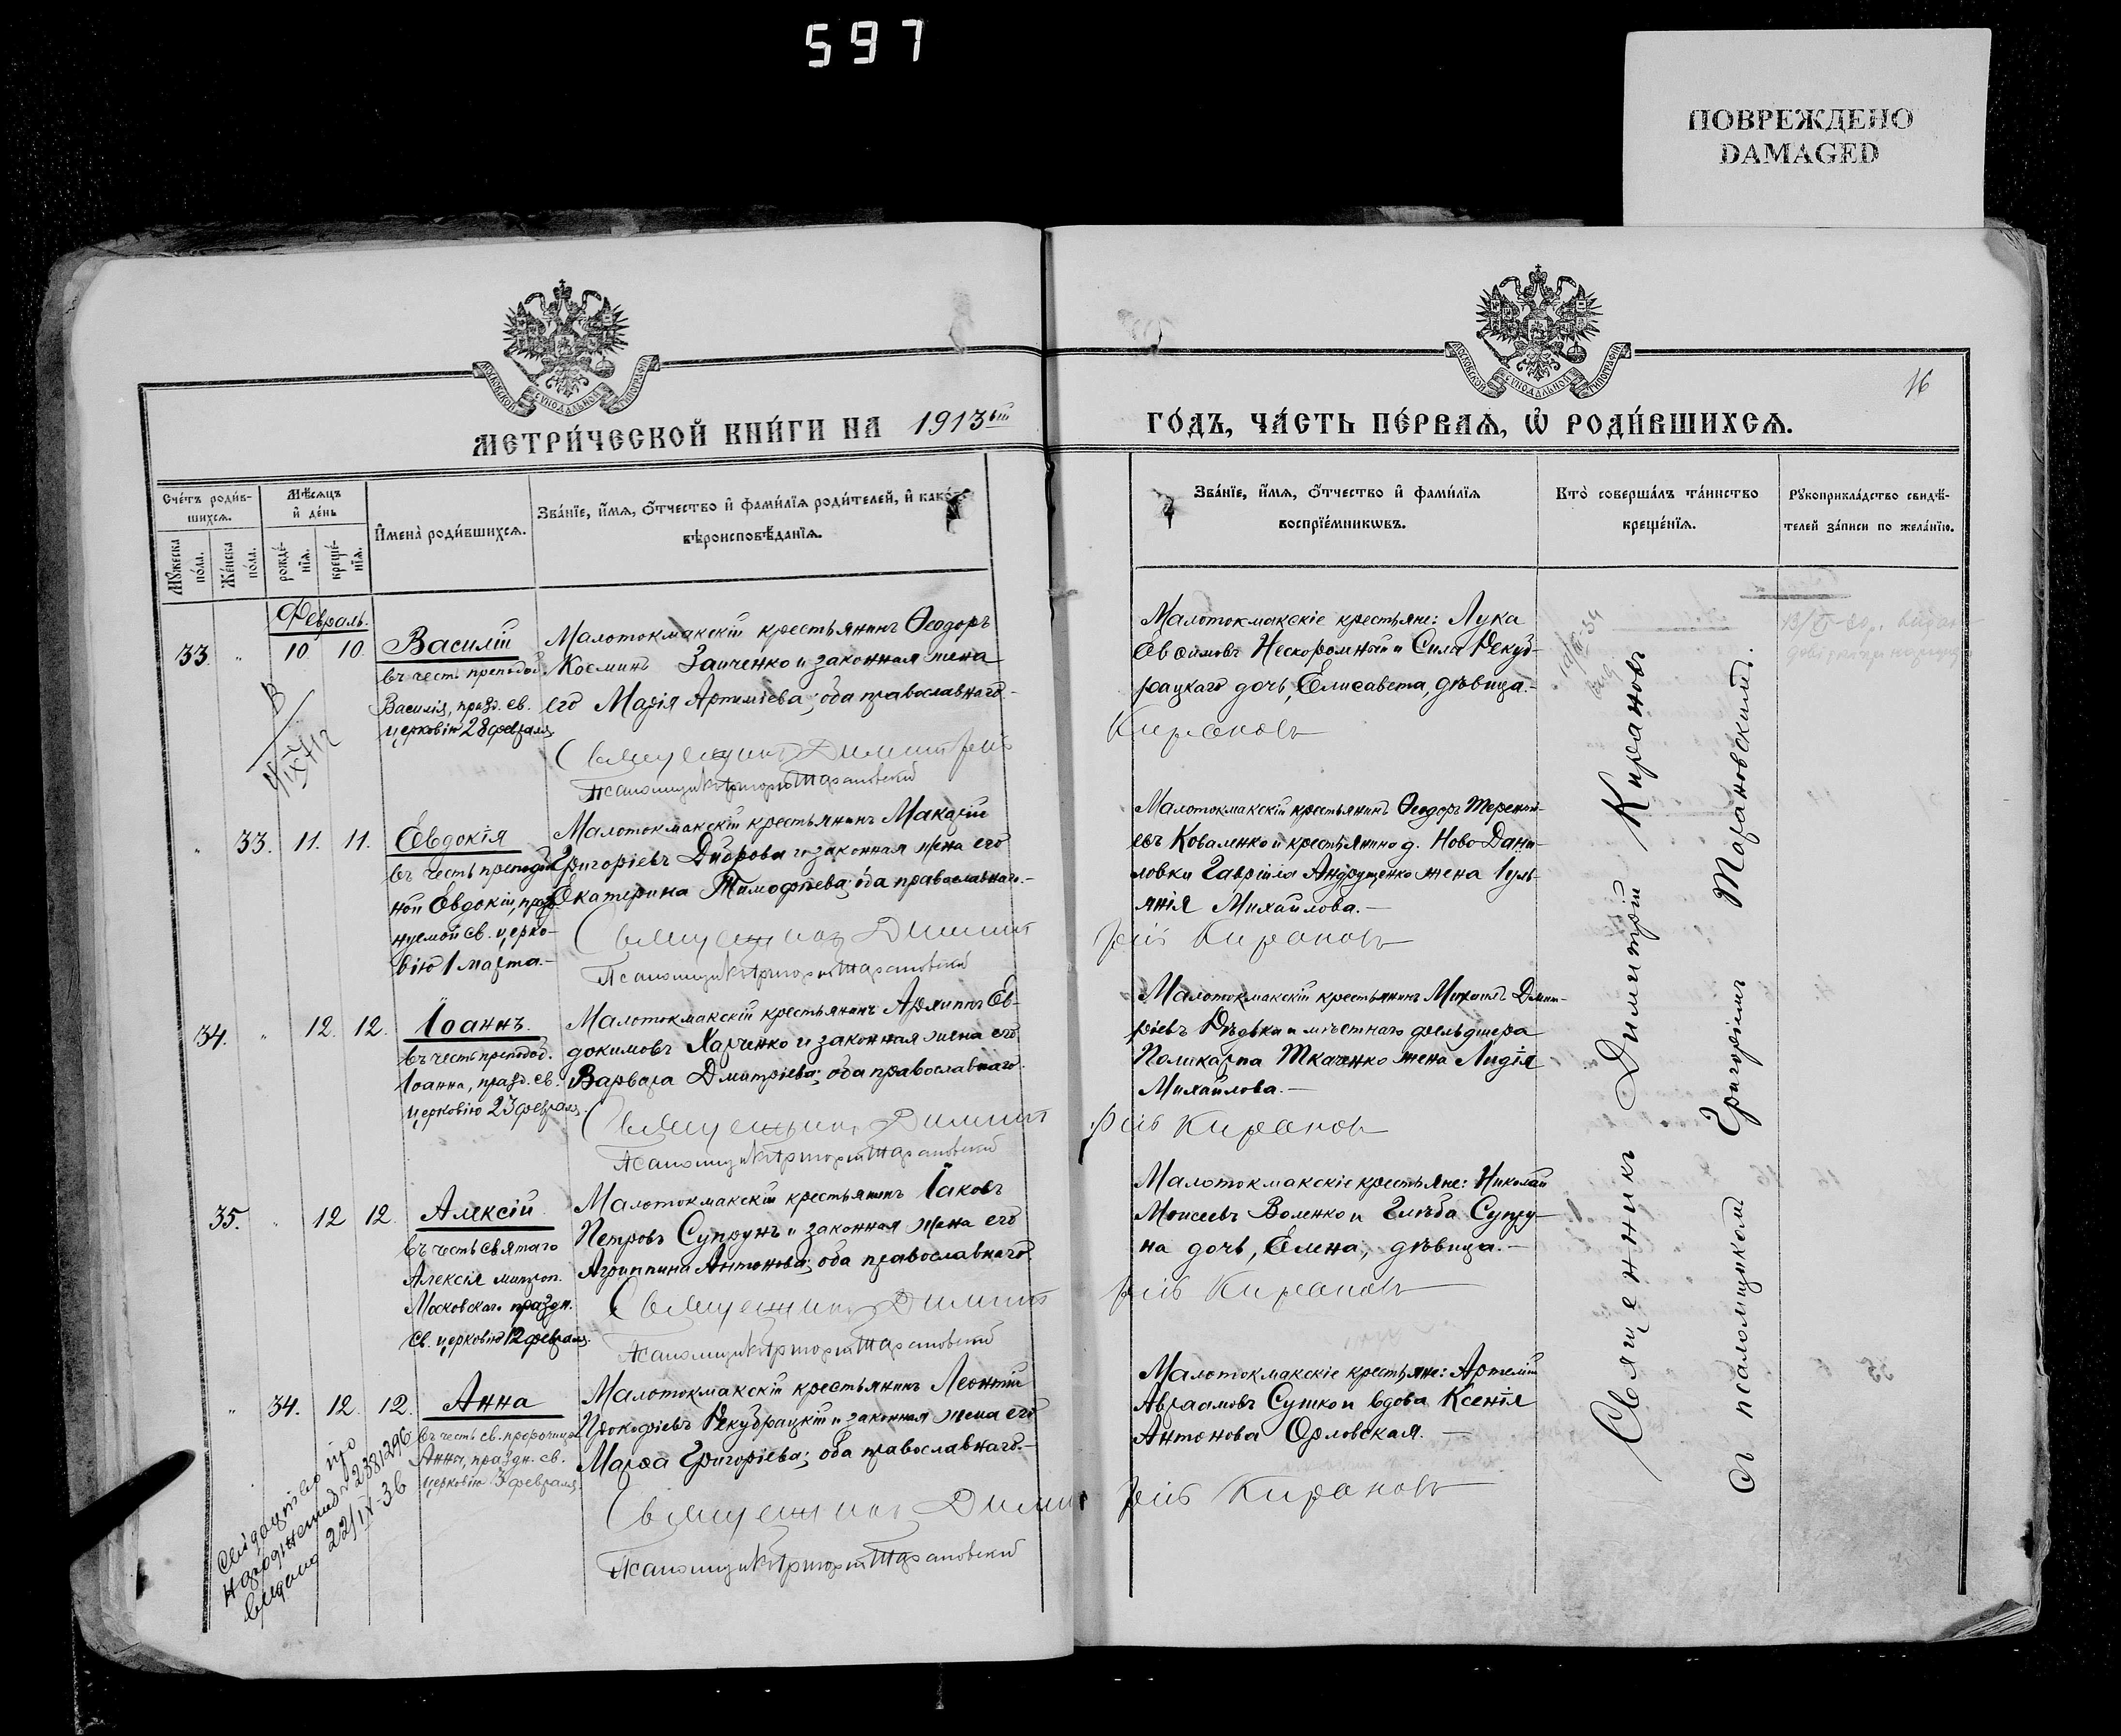 597
ПОВРЕЖДЕНО
DAMAGED
16
МОСКОВСКОЙ СѴНОДАЛЬНОЙ ТИПОГРАФІИ
МОСКОВСКОЙ СѴНОДАЛЬНОЙ ТИПОГРАФІИ
МЕТРИ́ЧЕСКОЙ КНИ́ГИ НА 1913ый
ГО́ДЪ, ЧА́СТЬ ПЕ́РВАѦ, Ѡ҆ РОДИ́ВШИХСѦ.
Сче́тъ роди́в-
шихсѧ.
Мꙋ́жеска
по́ла.
Же́нска
по́ла.
Мѣ́сѧцъ
и҆ де́нь
рожде́-
нїѧ.
креще́-
нїѧ.
И҆мена̀ роди́вшихсѧ.
Зва́нїе, и҆́мѧ, ѻ҆́тчество и҆ фами́лїѧ роди́телей, и҆ како́гѡ
вѣроисповѣ́данїѧ.
Зва́нїе, и҆́мѧ, ѻ҆́тчество и҆ фами́лїѧ
воспрїе́мникѡвъ.
Кто̀ соверша́лъ та́инство
креще́нїѧ.
Рꙋкоприкла́дство свидѣ́-
телей за́писи по жела́нїю.
Февраль.
33. " 10 10. Василій
въ честь преподоб.
Василія, празд. св.
церковію 28 февраля.
Малотокмакскій крестьянинъ Ѳеодоръ
Косминъ Заиченко и законная жена
его Марія Артиміева; оба православнаго.-
Священникъ Димитрій
Псаломщикъ Григорій Тарановскій
Малотокмакскіе крестьяне: Лука
Евѳимовъ Нескоромный и Сила Рекуб-
рацкаго дочь, Елисавета, дѣвица.-
Кирановъ
" 33. 11. 11. Евдокія
въ честь преподоб-
ной Евдокіи, празд-
нуемой св. церко-
вію 1 марта.-
Малотокмакскій крестьянинъ Макарій
Григоріевъ Диброва и законная жена его
Екатерина Тимофѣева; оба православнаго.-
Священникъ Димит
Псаломщикъ Григорій Тарановскій
Малотокмакскій крестьянинъ Ѳеодоръ Теренті-
евъ Коваленко и крестьянина д. Ново-Дани-
ловки Гавріила Андрущенко жена Іуль-
янія Михайлова.-
рій Кирановъ
34. " 12. 12. Іоаннъ.
въ честь преподоб.
Іоанна, празд. св.
церковію 23 февраля.
Малотокмакскій крестьянинъ Архиппъ Ев-
докимовъ Харченко и законная жена его
Варвара Дмитріева; оба православнаго.
Священникъ Димит
Псаломщикъ Григорій Тарановскій
Малотокмакскій крестьянинъ Михаилъ Дмит-
ріевъ Рѣдька и мѣстнаго фельдшера
Поликарпа Ткаченко жена Лидія
Михайлова.-
рій Кирановъ
35. " 12 12. Алексій
въ честь святаго
Алексія митроп.
Московскаго праздн.
св. церковію 12 февраля.
Малотокмакскій крестьянинъ Іаковъ
Петровъ Супрунъ и законная жена его
Агриппина Антонова; оба православнаго.
Священникъ Димит
Псаломщикъ Григорій Тарановскій
Малотокмакскіе крестьяне: Николай
Моисеевъ Воленко и Глѣба Супру-
на дочь, Елена, дѣвица.-
рій Кирановъ
" 34. 12. 12. Анна
въ честь св. пророчицы
Анны, праздн. св.
церковію 3 февраля.
Малотокмакскій крестьянинъ Леонтій
Прокофіевъ Рекубрацкій и законная жена его
Марѳа Григоріева; оба православнаго.-
Священникъ Дими
Псаломщикъ Григорій Тарановскій
Малотокмакскіе крестьяне: Артемій
Авраамовъ Сушко и вдова Ксенія
Антонова Орловская.-
трій Кирановъ
Священникъ Димитрій Кирановъ
съ псаломщикомъ Григоріемъ Тарановскимъ.
Свідоцтво про
народження № 2381296
видано 22/IX-36